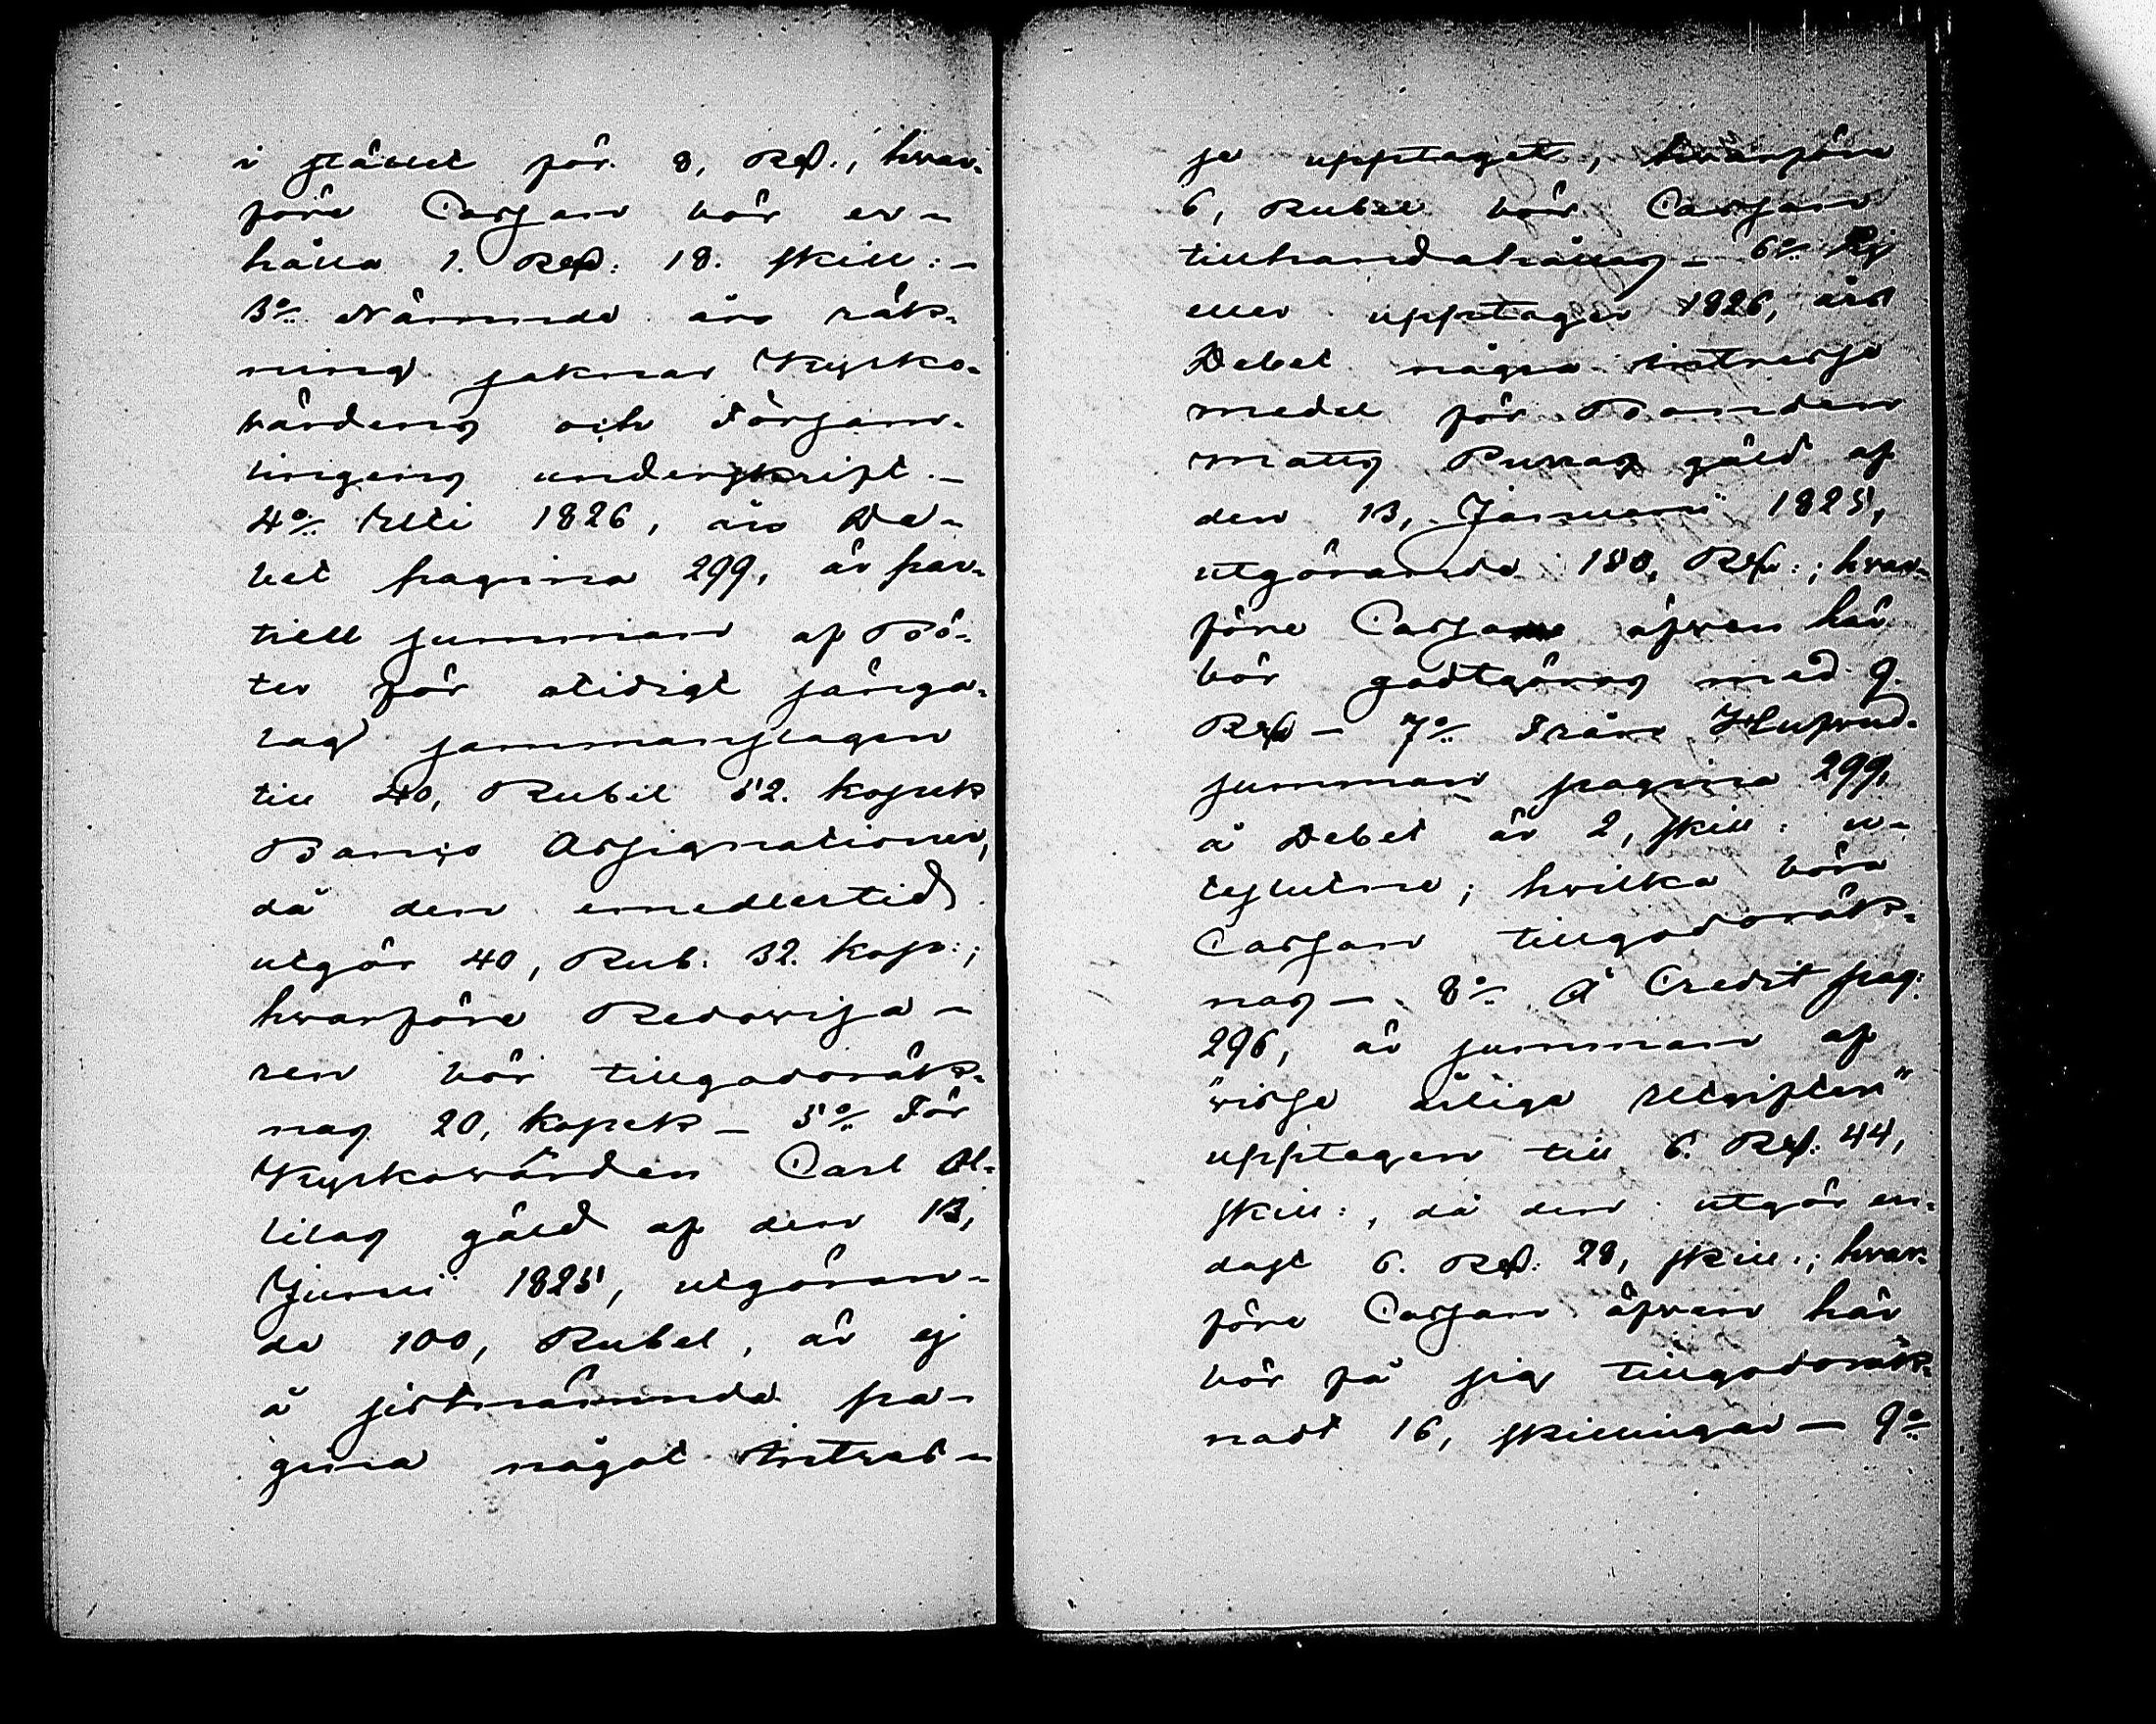 i stället för 8, Rd., hvar-
före Cassan bör er-
hålla 1. Rd: 18. skill:-
3:o Nämnde års räk-
ning saknar Kyrko-
värdens och Församl-
lingens underskrift.-
4:o Uti 1826, års De-
bet pagina 299, är par-
tiell summan af Bö-
ter för otidigt sänga-
lag sammanslagen
till 40, Rubel 52. kopek
Banco Assignationer,
då den emedlertid
utgör 40, Rub. 32. kop:;
hvarföre Redovisa-
ren bör tillgodoräk-
nas 20, kopek - 5:o För
Kyrkovärden Carl Al-
litas gäld af den 13,
Junii 1825, utgöran-
de 100, Rubel, är ej
å sistnämnda pa-
gina något Intres-
se upptaget, hvarföre
6, Rubel bör Cassan
tillhandahållas - 6:o Ej
eller upptager 1826, års
Debet några intresse
medel för Bonden
Matts Puras gäld af
den 13, Januarii 1825,
utgörande 180, Rd:; hvar-
före Cassan äfven här
bör godtgöras med 9.
Rd - 7:o Från Hufvud-
summan pagina 299,
å Debet är 2, skill: u-
teslutne; hvilka böra
Cassan tillgodoräk-
nas - 8:o Å Credit pag:
296, är summan af
"visse årliga Utgifter"
upptagen till 6. Rd: 44,
skill:, då den utgör en-
dast 6. Rd: 28, skill:; hvar-
före Cassan äfven här
bör få sig tillgodoräk-
nadt 16, skillingar - 9:o